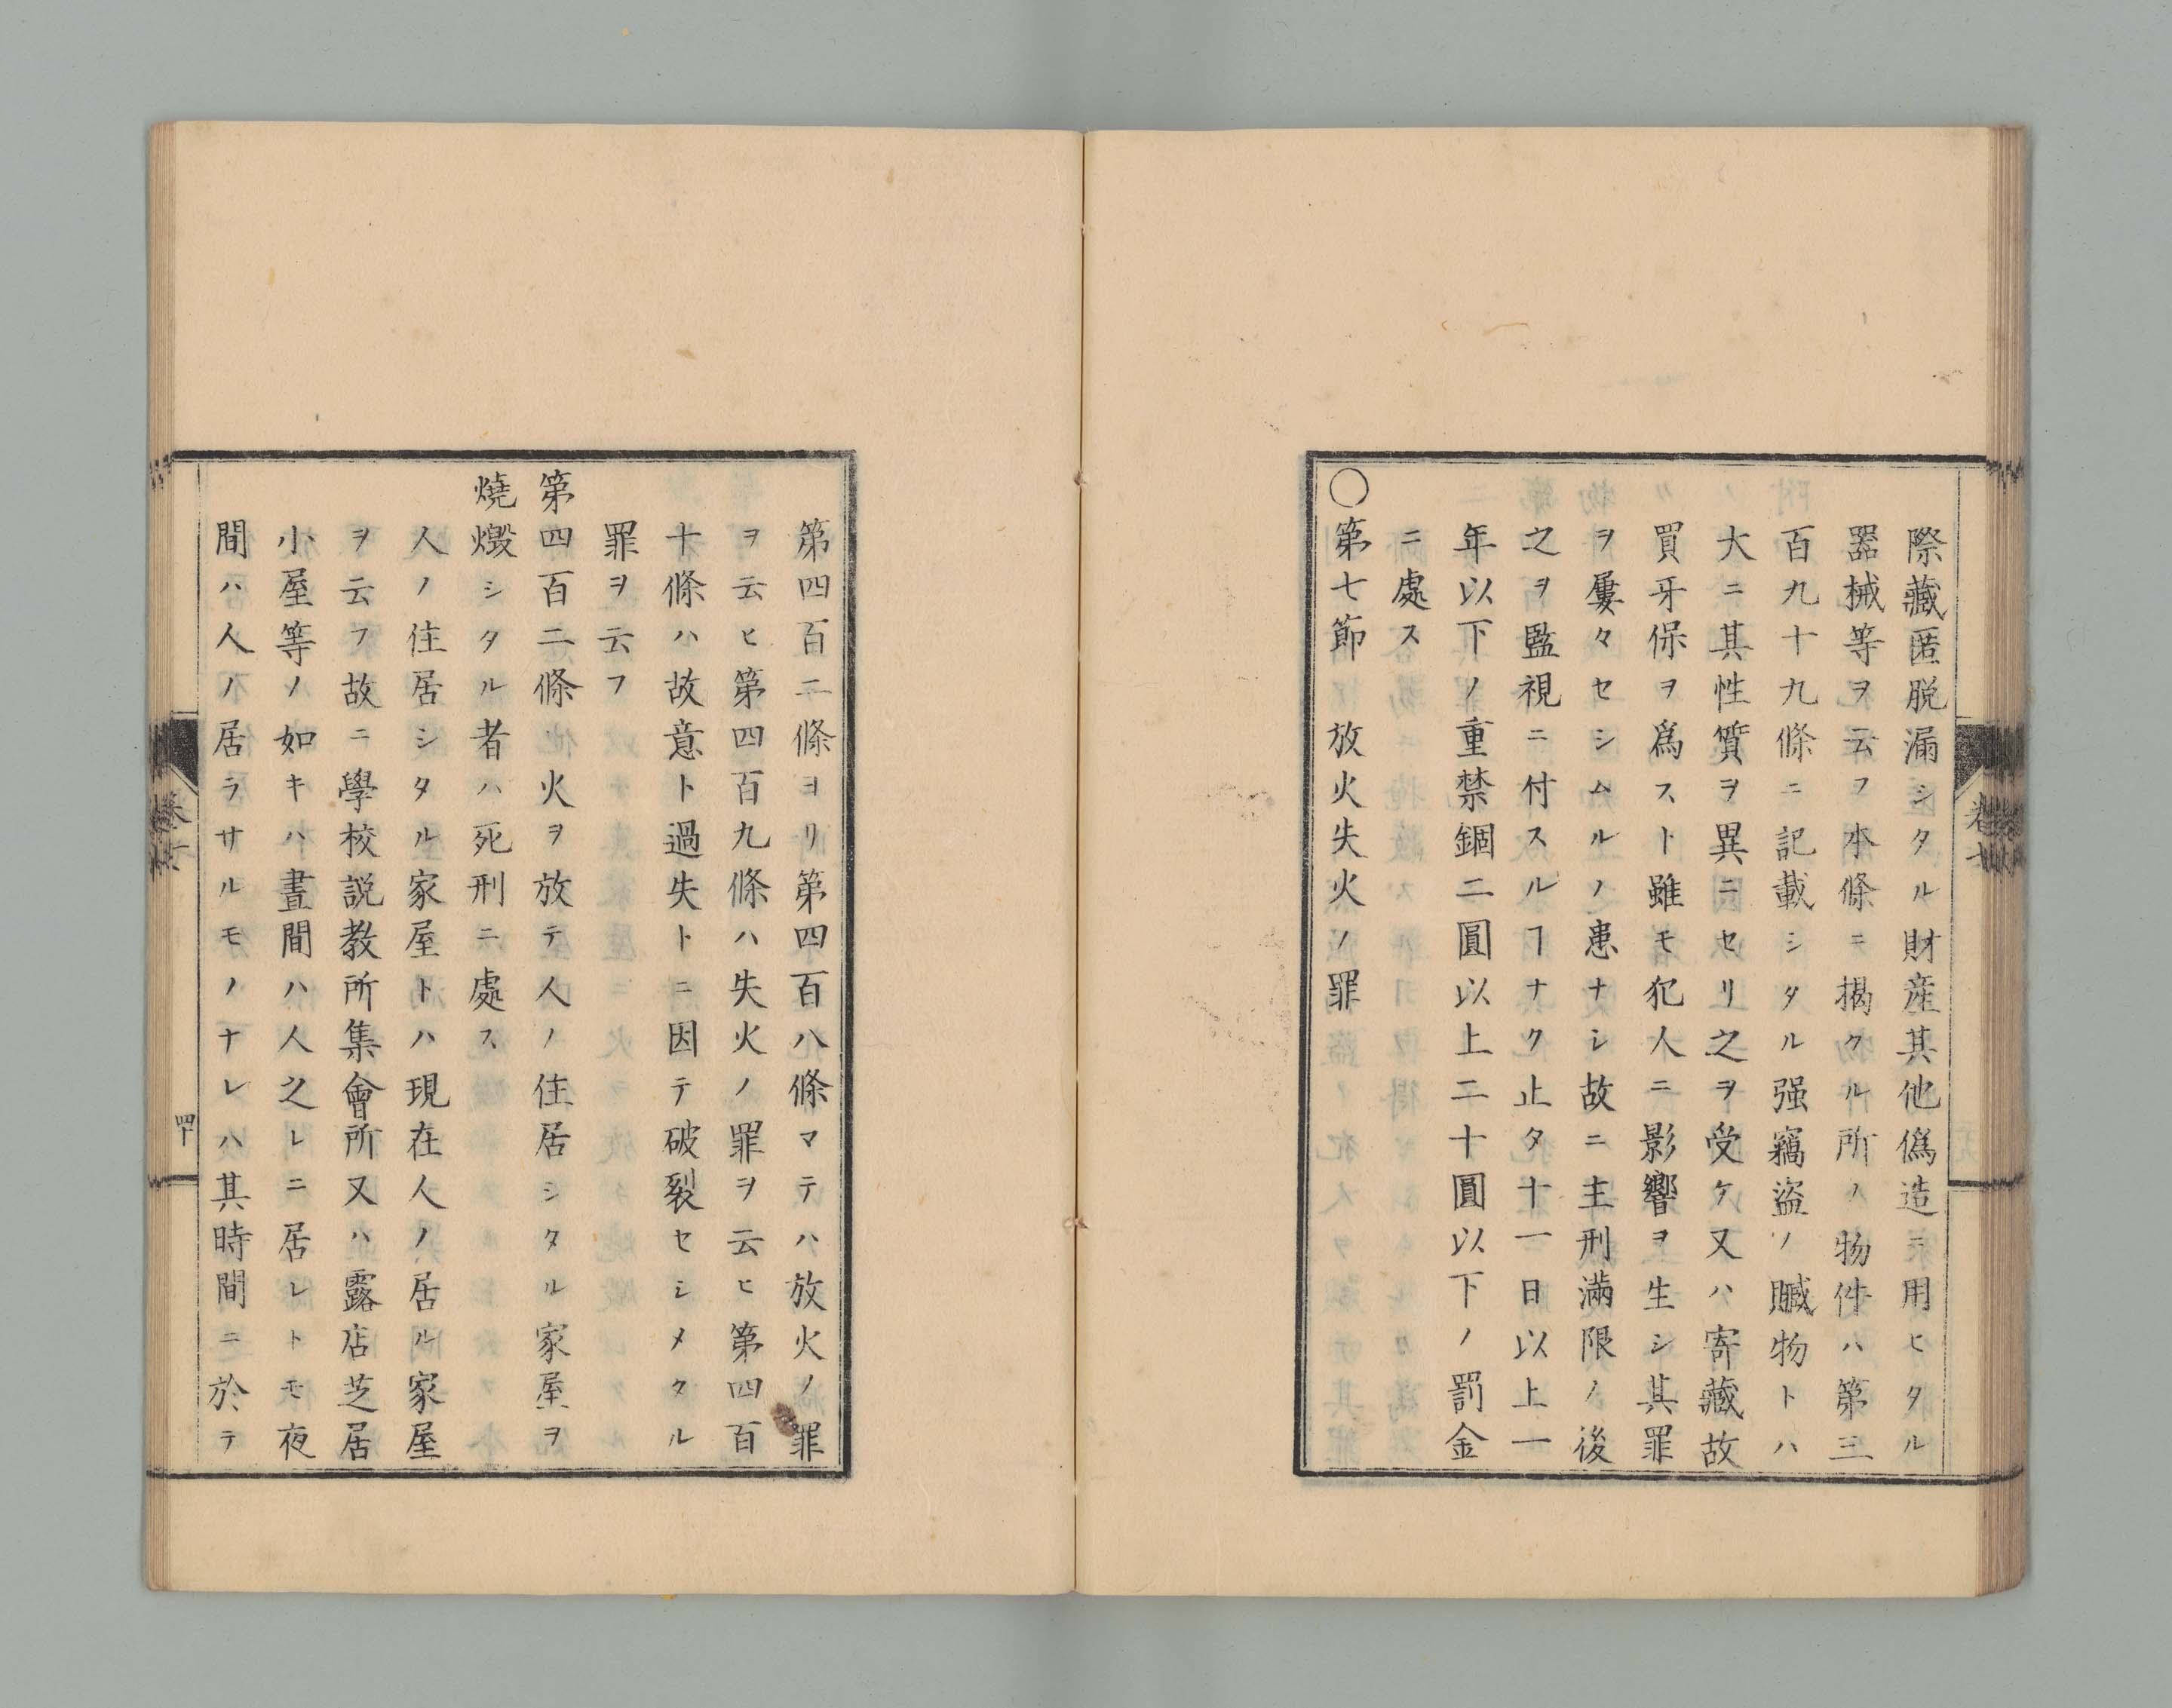 際藏匿脱漏シタル財産其他僞造ニ用ヒタル
器械等ヲ云フ本條ニ揭クル所ノ物件ハ第三
百九十九條ニ記載シタル强竊盜ノ贓物トハ
大ニ其性質ヲ異ニセリ之ヲ受ケ又ハ寄藏故
買牙保ヲ爲スト雖モ犯人ニ影響ヲ生シ其罪
ヲ屢々セシムルノ患ナシ故ニ主刑滿限ノ後
之ヲ監視ニ付スルヿナク止タ十一日以上一
年以下ノ重禁錮二圓以上二十圓以下ノ罰金
ニ處ス
〇第七節 放火失火ノ罪
卷七
第四百二條ヨリ第四百八條マテハ放火ノ罪
ヲ云ヒ第四百九條ハ失火ノ罪ヲ云ヒ第四百
十條ハ故意ト過失トニ因テ破裂セシメタル
罪ヲ云フ
第四百二條 火ヲ放テ人ノ住居シタル家屋ヲ
燒燬シタル者ハ死刑ニ處ス
人ノ住居シタル家屋トハ現在人ノ居ル家屋
ヲ云フ故ニ學校説教所集會所又ハ露店芝居
小屋等ノ如キハ晝間ハ人之レニ居レトモ夜
間ハ人ノ居ラサルモノナレハ其時間ニ於テ
四十